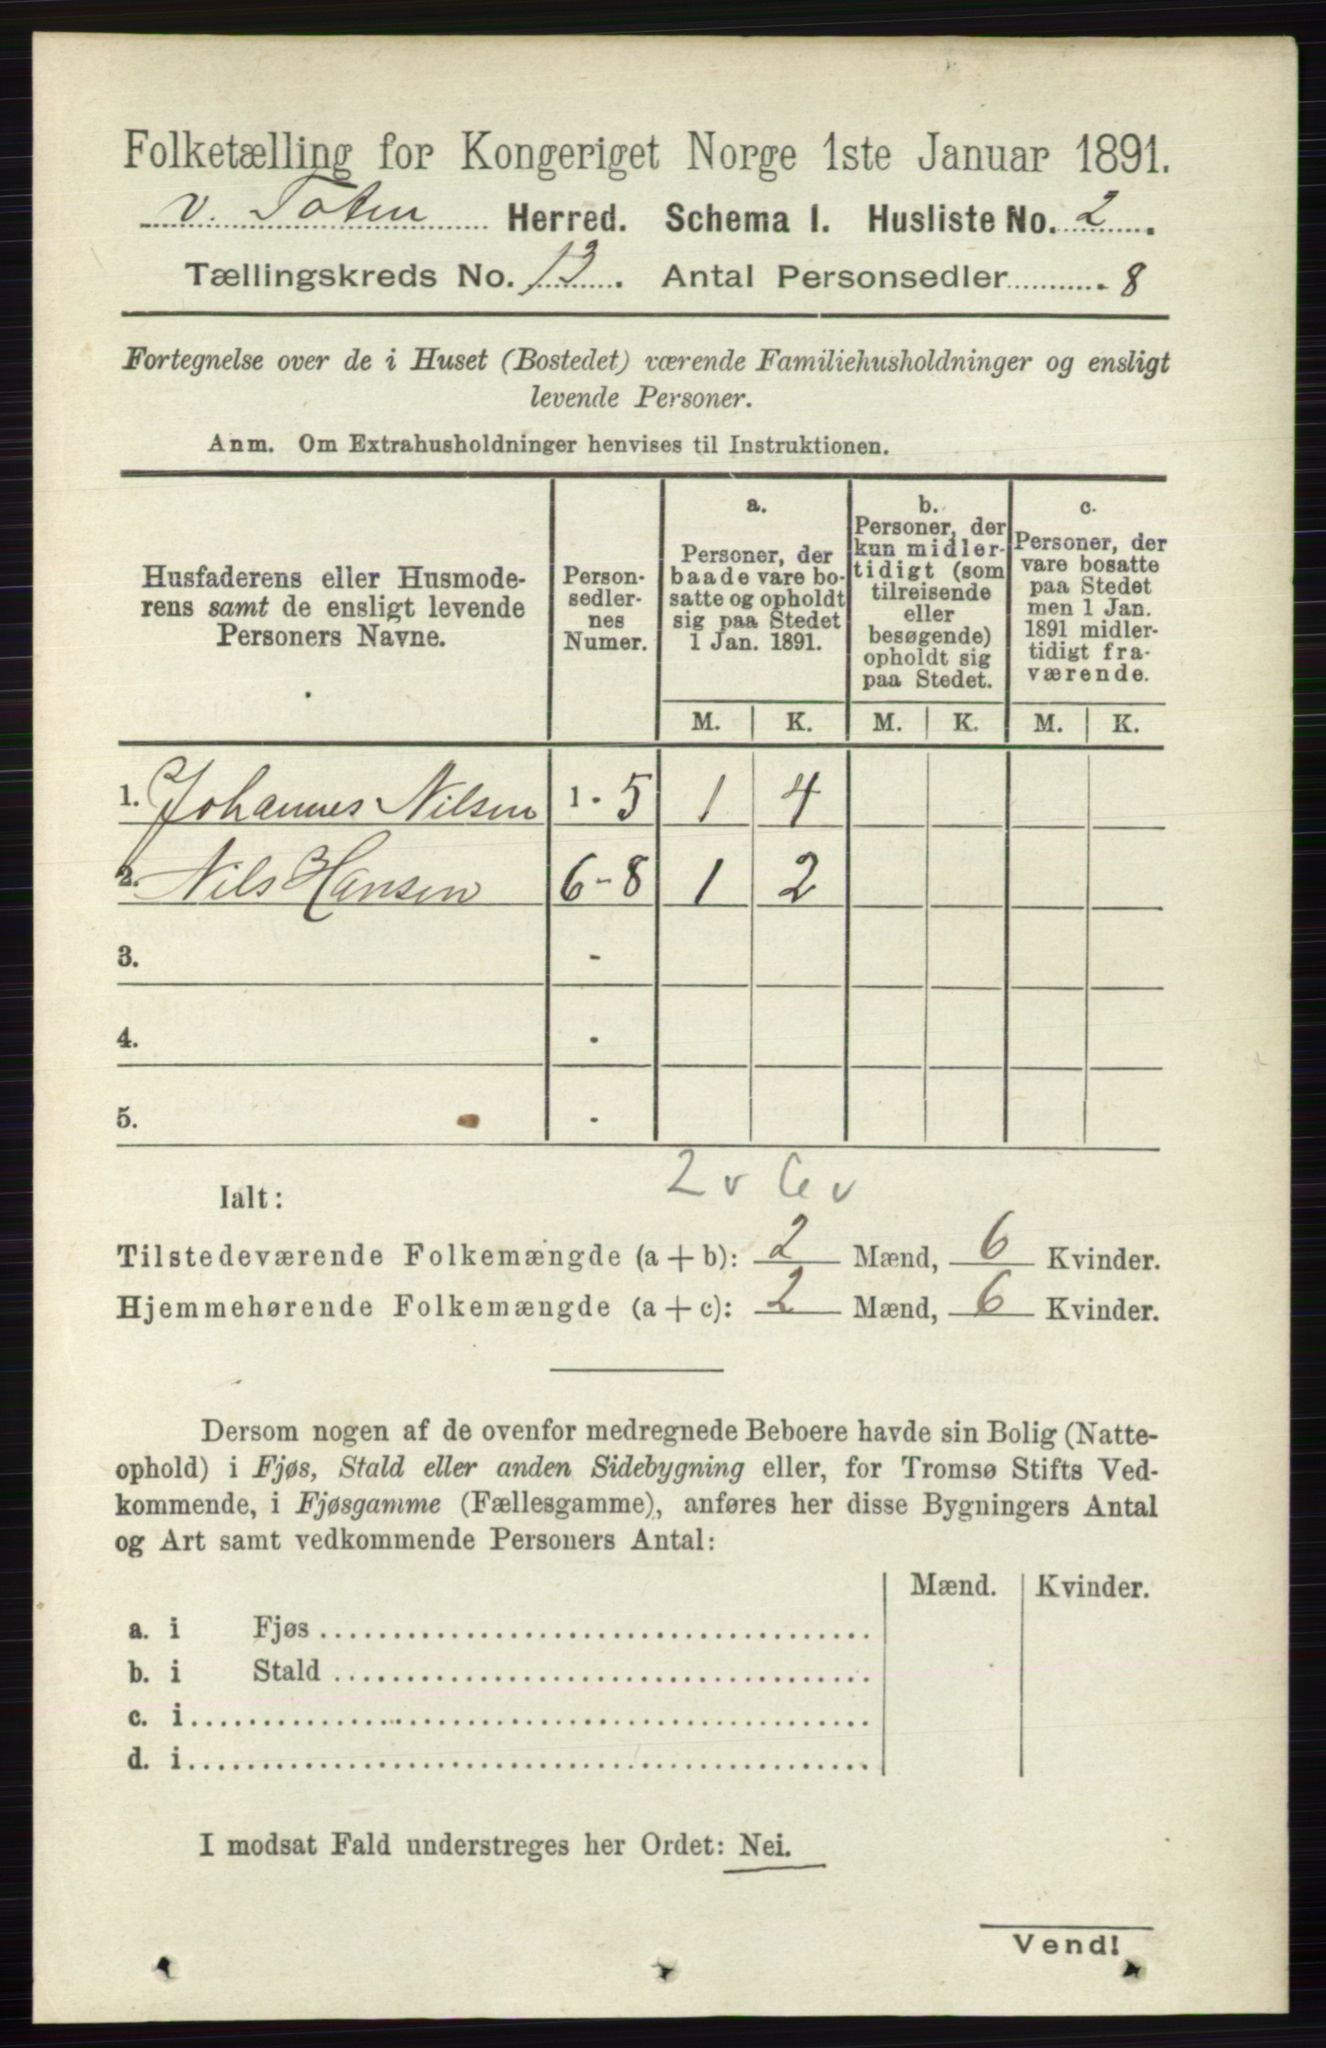 Folketælling for Kongeriget Norge 1ste Januar 1891.
V. Toten Herred. Schema I. Husliste No. 2.
Tællingskreds No. 13. Antal Personsedler 8
Fortegnelse over de i Huset (Bostedet) værende Familiehusholdninger og ensligt
levende Personer.
Anm. Om Extrahusholdninger henvises til Instruktionen.
Husfaderens eller Husmode-
rens samt de ensligt levende
Personers Navne.
Person-
sedler-
nes
Numer.
a.
Personer, der
baade vare bo-
satte og opholdt
sig paa Stedet
1 Jan. 1891.
b.
Personer, der
kun midler-
tidigt (som
tilreisende
eller
besøgende)
opholdt sig
paa Stedet.
c.
Personer, der
vare bosatte
paa Stedet
men 1 Jan.
1891 midler-
tidigt fra-
værende.
M. K. M. K. M. K.
1. Johannes Nilsen 1 - 5 1 4
2. Nils Hansen 6 - 8 1 2
3. -
4. -
5. -
2 v 6 v
Ialt:
Tilstedeværende Folkemængde (a + b): 2 Mænd, 6 Kvinder.
Hjemmehørende Folkemængde (a + c): 2 Mænd, 6 Kvinder.
Dersom nogen af de ovenfor medregnede Beboere havde sin Bolig (Natte-
ophold) i Fjøs, Stald eller anden Sidebygning eller, for Tromsø Stifts Ved-
kommende, i Fjøsgamme (Fællesgamme), anføres her disse Bygningers Antal
og Art samt vedkommende Personers Antal:
Mænd. Kvinder.
a. i Fjøs
b. i Stald
c. i
d. i
I modsat Fald understreges her Ordet: Nei.
Vend!